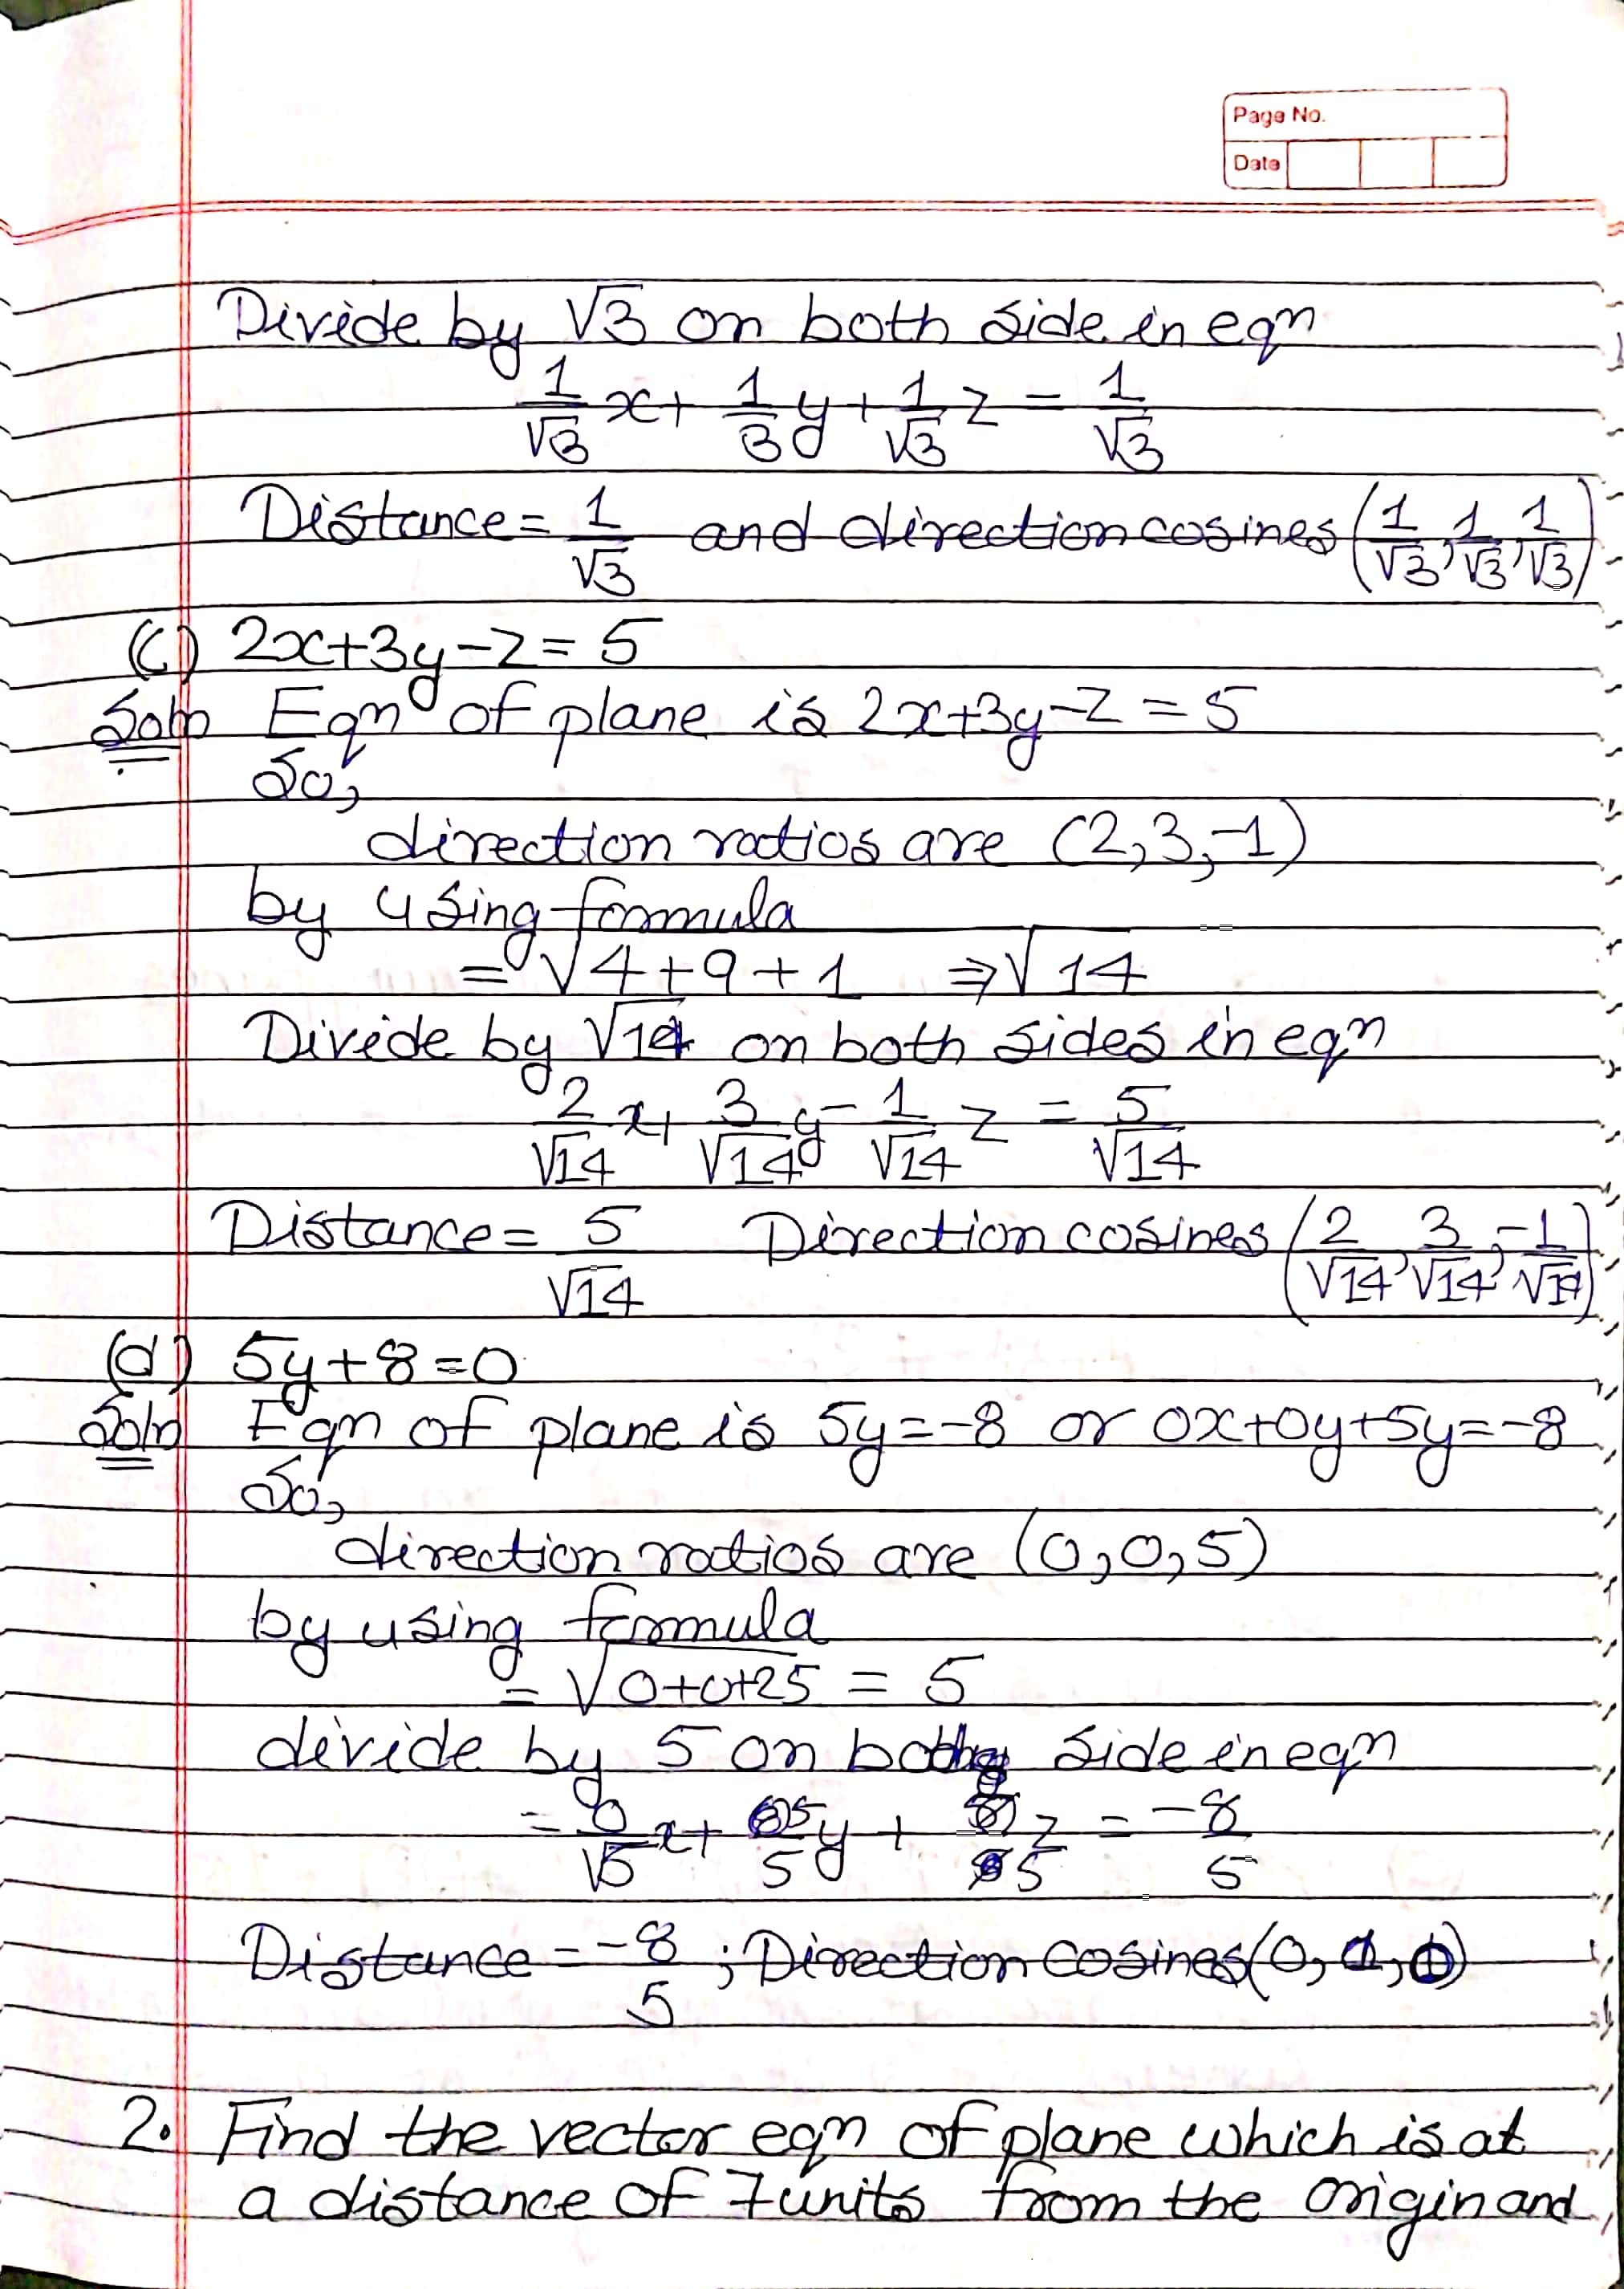 Page No.
Date
Divide by √3 on both side in eqn
1/√3 x + 1/3 y + 1/√3 z = 1/√3
Distance = 1/√3 and direction cosines (1/√3, 1/√3, 1/√3)
(c) 2x+3y-z = 5
Soln Eqn of plane is 2x+3y-z = 5
So,
direction ratios are (2,3,-1)
by using formula
= √4+9+1 ⇒ √14
Divide by √14 on both sides in eqn
2/√14 x + 3/√14 y - 1/√14 z = 5/√14
Distance = 5/√14 Direction cosines (2/√14, 3/√14, -1/√14)
(d) 5y+8=0
Soln Eqn of plane is 5y=-8 or 0x+0y+5y=-8
So,
direction ratios are (0,0,5)
by using formula
= √0+0+25 = 5
divide by 5 on both side in eqn
= 0/√5 x + 5/5 y + /5 z = -8/5
Distance = -8/5 ; Direction cosines (0, 1, 0)
2. Find the vector eqn of plane which is at
a distance of 7 units from the origin and